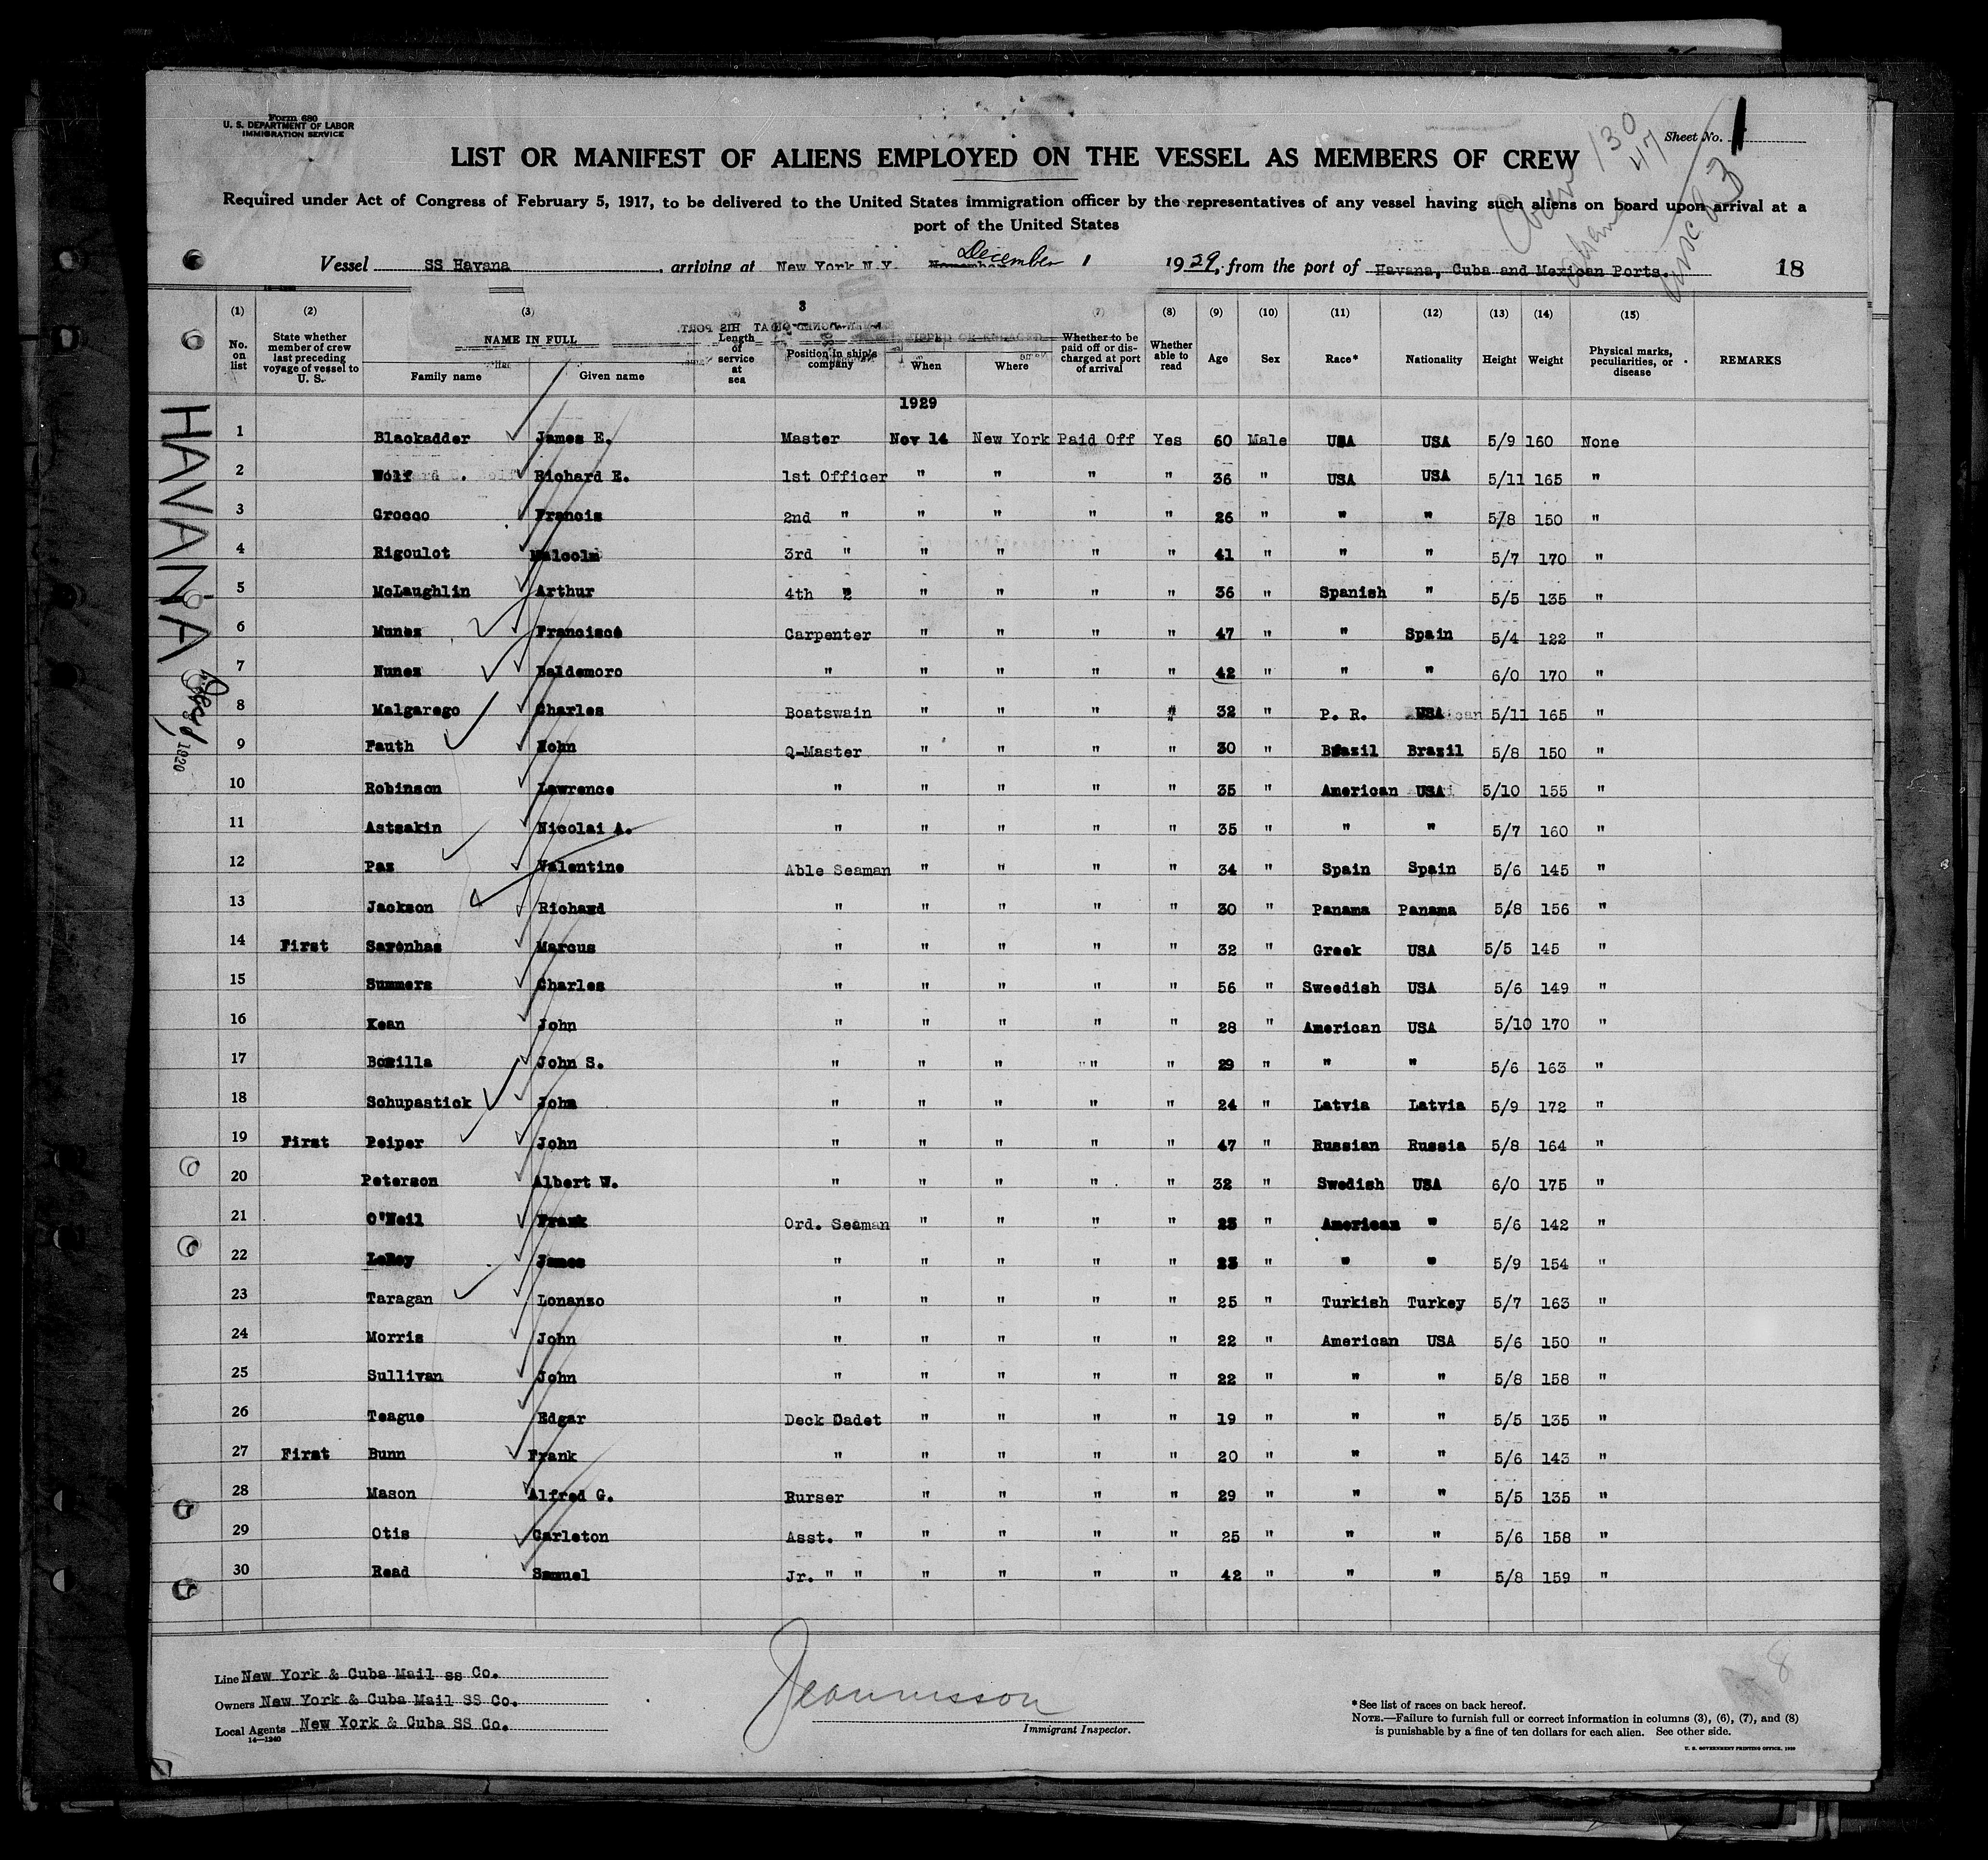 Form 680
U. S. DEPARTMENT OF LABOR
IMMIGRATION SERVICE
Sheet No. 1
130
47
83
LIST OR MANIFEST OF ALIENS EMPLOYED ON THE VESSEL AS MEMBERS OF CREW
Required under Act of Congress of February 5, 1917, to be delivered to the United States immigration officer by the representatives of any vessel having such aliens on board upon arrival at a
port of the United States
Vessel SS Havana, arriving at New York N.Y. November December 1 1929, from the port of Havana, Cuba and Mexican Ports. 18
(1) (2) (3) 3 (7) (8) (9) (10) (11) (12) (13) (14) (15)
No. on list State whether member of crew last preceding voyage of vessel to U. S. NAME IN FULL Family name Given name Length of service at sea Position in ship's company When Where Whether to be paid off or discharged at port of arrival Whether able to read Age Sex Race* Nationality Height Weight Physical marks, peculiarities, or disease REMARKS
1929
1 Blackadder James E. Master Nov 14 New York Paid Off Yes 60 Male USA USA 5/9 160 None
2 Wolf Richard E. 1st Officer " " " " 36 " USA USA 5/11 165 "
3 Crocco Francis 2nd " " " " " 26 " " " 5/8 150 "
4 Rigoulot Malcolm 3rd " " " " " 41 " " " 5/7 170 "
5 McLaughlin Arthur 4th " " " " 36 " Spanish " 5/5 135 "
6 Munez Francisco Carpenter " " " " 47 " " Spain 5/4 122 "
7 Nunez Baldemoro " " " " " 42 " " " 6/0 170 "
8 Malgarego Charles Boatswain " " " " 32 " P. R. USA 5/11 165 "
9 Fauth John Q-Master " " " " 30 " Brazil Brazil 5/8 150 "
10 Robinson Lawrence " " " " " 35 " American USA 5/10 155 "
11 Astsakin Nicolai A. " " " " " 35 " " " 5/7 160 "
12 Paz Valentine Able Seaman " " " " 34 " Spain Spain 5/6 145 "
13 Jackson Richard " " " " " 30 " Panama Panama 5/8 156 "
14 First Saronhas Marcus " " " " " 32 " Greek USA 5/5 145 "
15 Summers Charles " " " " " 56 " Sweedish USA 5/6 149 "
16 Kean John " " " " " 28 " American USA 5/10 170 "
17 Bozilla John S. " " " " " 29 " " " 5/6 163 "
18 Schupastick John " " " " " 24 " Latvia Latvia 5/9 172 "
19 First Peiper John " " " " " 47 " Russian Russia 5/8 164 "
20 Peterson Albert W. " " " " " 32 " Swedish USA 6/0 175 "
21 O'Neil Frank Ord. Seaman " " " " 23 " American " 5/6 142 "
22 LeRoy James " " " " " 23 " " " 5/9 154 "
23 Taragan Lonanzo " " " " " 25 " Turkish Turkey 5/7 163 "
24 Morris John " " " " " 22 " American USA 5/6 150 "
25 Sullivan John " " " " " 22 " " " 5/8 158 "
26 Teague Edgar Deck Cadet " " " " 19 " " " 5/5 135 "
27 First Bunn Frank " " " " " 20 " " " 5/6 143 "
28 Mason Alfred G. Purser " " " " 29 " " " 5/5 135 "
29 Otis Carleton Asst. " " " " " 25 " " " 5/6 158 "
30 Read Samuel Jr. " " " " " " 42 " " " 5/8 159 "
HAVANA
Line New York & Cuba Mail ss Co.
Owners New York & Cuba Mail SS Co.
Local Agents New York & Cuba SS Co.
14—1240
Immigrant Inspector.
8
*See list of races on back hereof.
NOTE.—Failure to furnish full or correct information in columns (3), (6), (7), and (8)
is punishable by a fine of ten dollars for each alien. See other side.
U. S. GOVERNMENT PRINTING OFFICE, 1929